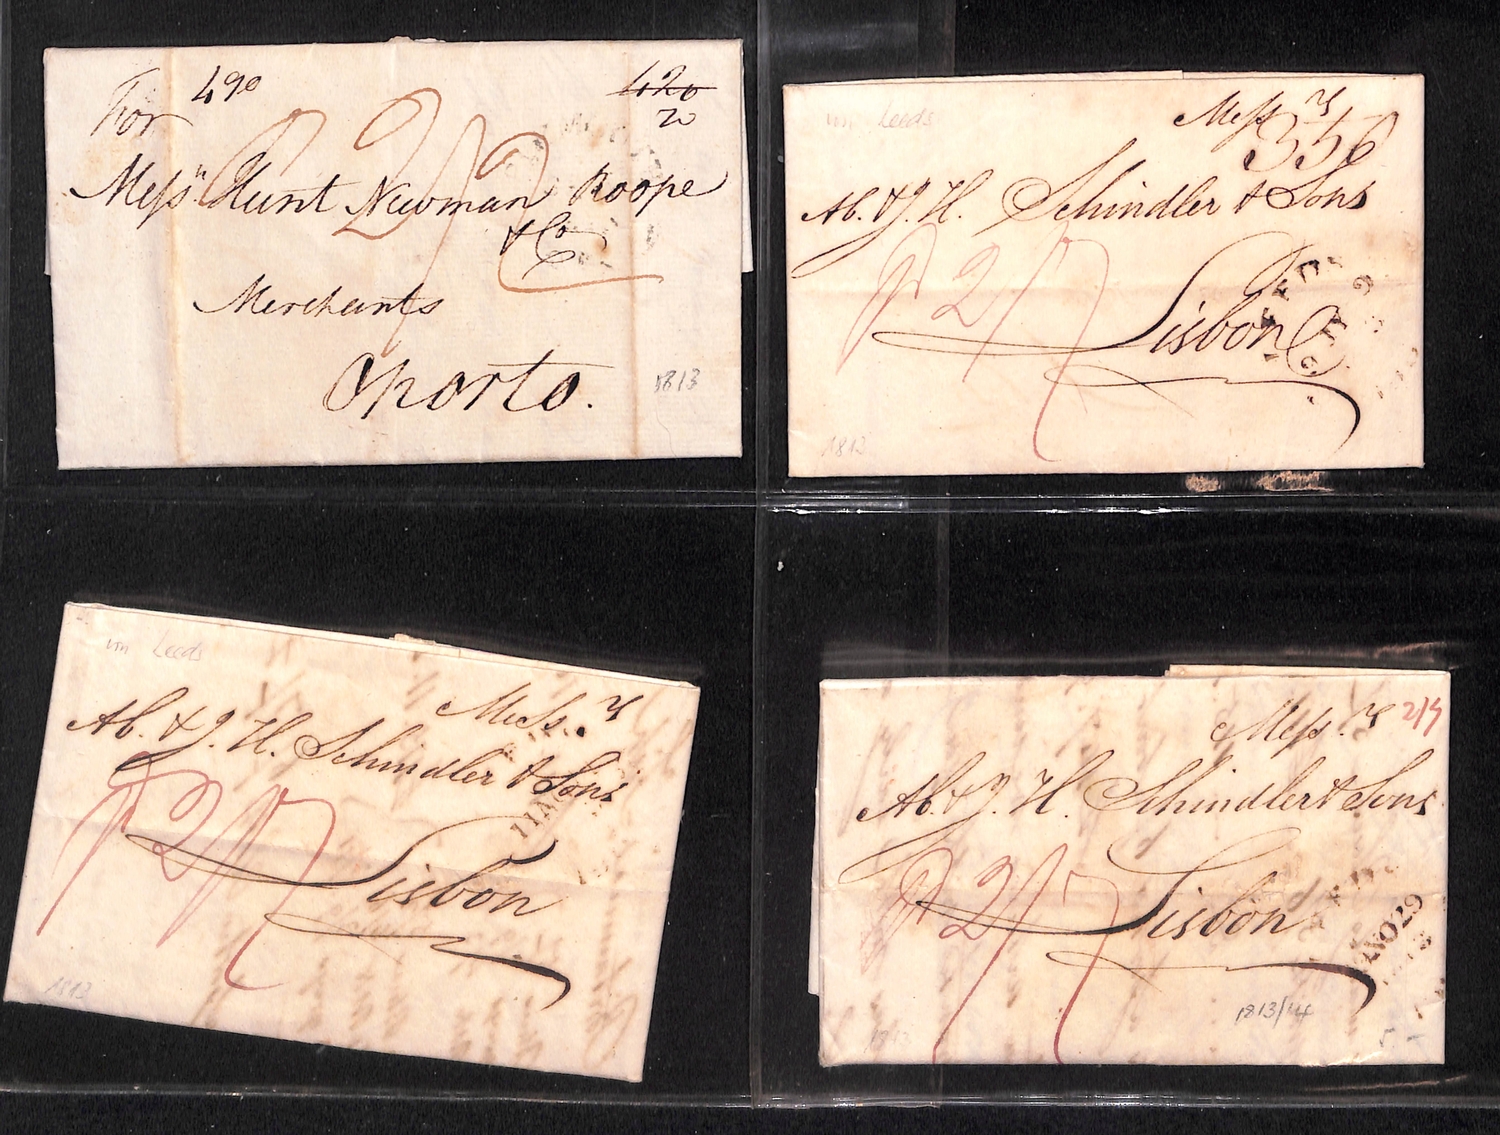 For 490 420
20
Messrs Hunt Newman Roope
& Co
Merchants
Oporto.
1813
von Leeds
Messrs
356
Ab. & J. H. Schindler & Sons
P 2/7
Lisbon
LEEDS
1813
von Leeds
Messrs
Ab. & J. H. Schindler & Sons
P 2/7
Lisbon
1813
Messrs 2/7
Ab. & J. H. Schindler & Sons
P 2/7
Lisbon
NO29
1813
1813/14